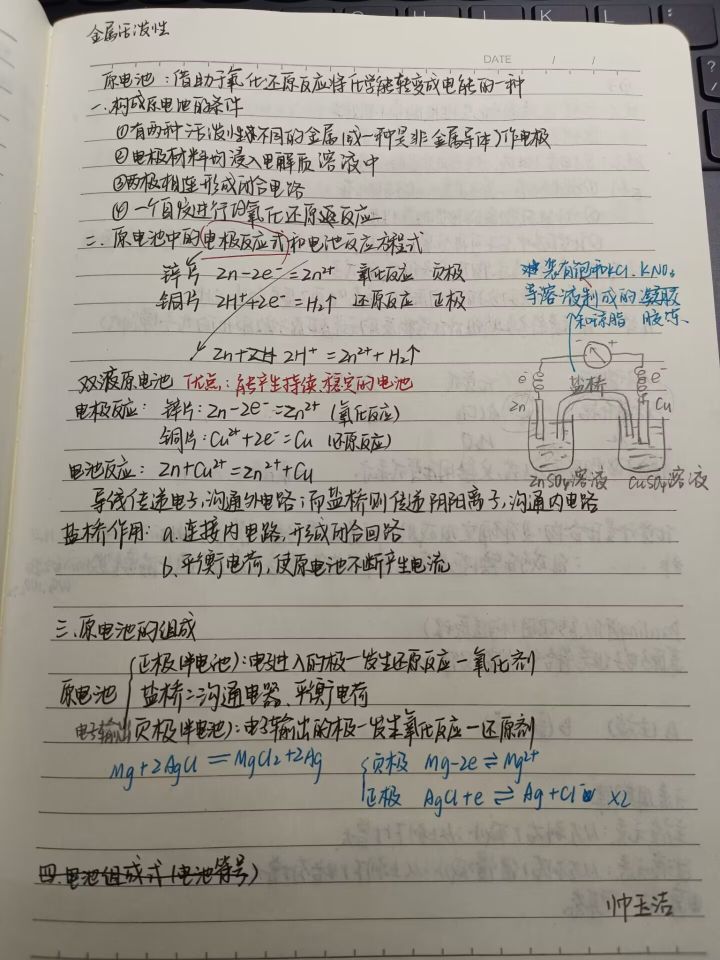 金属活泼性
DATE / /
原电池：借助于氧化还原反应将化学能转变成电能的一种
一.构成原电池的条件
①有两种活泼性不同的金属(或一种是非金属导体)作电极
②电极材料均浸入电解质溶液中
③两极相连形成闭合电路
④一个自发进行的氧化还原反应
二.原电池中的电极反应式和电池反应方程式
锌片 Zn-2e⁻=Zn²⁺ 氧化反应 负极
铜片 2H⁺+2e⁻=H₂↑ 还原反应 正极
装有饱和KCl、KNO₃
等溶液制成的凝胶
胶冻
Zn+2H⁺=Zn²⁺+H₂↑
双液原电池 优点：能产生持续、稳定的电池
电极反应：锌片：Zn-2e⁻=Zn²⁺ (氧化反应)
铜片：Cu²⁺+2e⁻=Cu (还原反应)
电池反应：Zn+Cu²⁺=Zn²⁺+Cu
e⁻ 盐桥 e⁻
Zn Cu
ZnSO₄溶液 CuSO₄溶液
导线传递电子,沟通外电路；而盐桥则传递阴阳离子,沟通内电路
盐桥作用：a.连接内电路,形成闭合回路
b.平衡电荷,使原电池不断产生电流
三.原电池的组成
正极(半电池)：电子进入的极—发生还原反应—氧化剂
原电池 盐桥：沟通电路、平衡电荷
电子输出 负极(半电池)：电子输出的极—发生氧化反应—还原剂
Mg+2AgCl=MgCl₂+2Ag
负极 Mg-2e⇌Mg²⁺
正极 AgCl+e⇌Ag+Cl⁻ ×2
四.电池组成式(电池符号)
帅玉洁